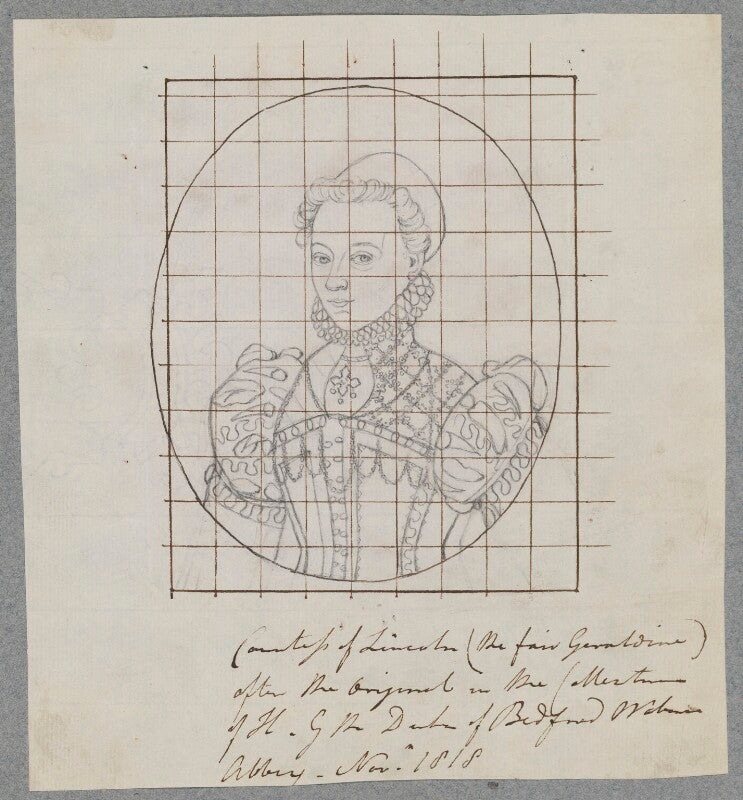 Countess of Lincoln (the fair Geraldine)
after the original in the Collection
of H. G the Duke of Bedford Woburn
Abbey - Novr. 1818